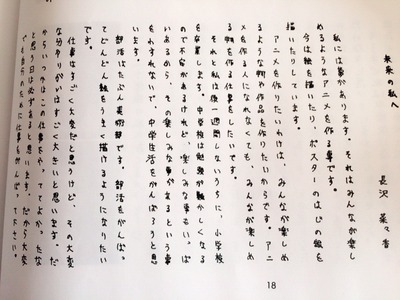 未来の私へ
長沢 菜々香
私には夢があります。それはみんなが楽し
めるようなアニメを作る事です。
今は絵を描いたり、ポスターのはじの絵を
描いたりしています。
アニメを作りたいわけは、みんなが楽しめ
るような物や作品を作りたいからです。アニ
メを作る人になれなくても、みんなが楽しめ
る物を作る仕事をしたいです。
それと私は後一週間しないうちに、小学校
を卒業します。中学校は勉強が難かしくなる
ので不安があるけれど、楽しみな事もいっぱ
いあるから、その楽しみな事があるという事
をわすれないで、中学生活をがんばろうと思
います。
部活はたぶん美術部です。部活をがんば
てどんどん絵をうまく描けるようになりたい
です。
仕事はすごく大変だと思うけど、その大変
な分やりがいはすごく大きいと思います。だ
からいつかはこの仕事をやっててよかったな
と思う日は必ずあると思います。だから大変
でも自分のために仕事をがんばって下さい。
18